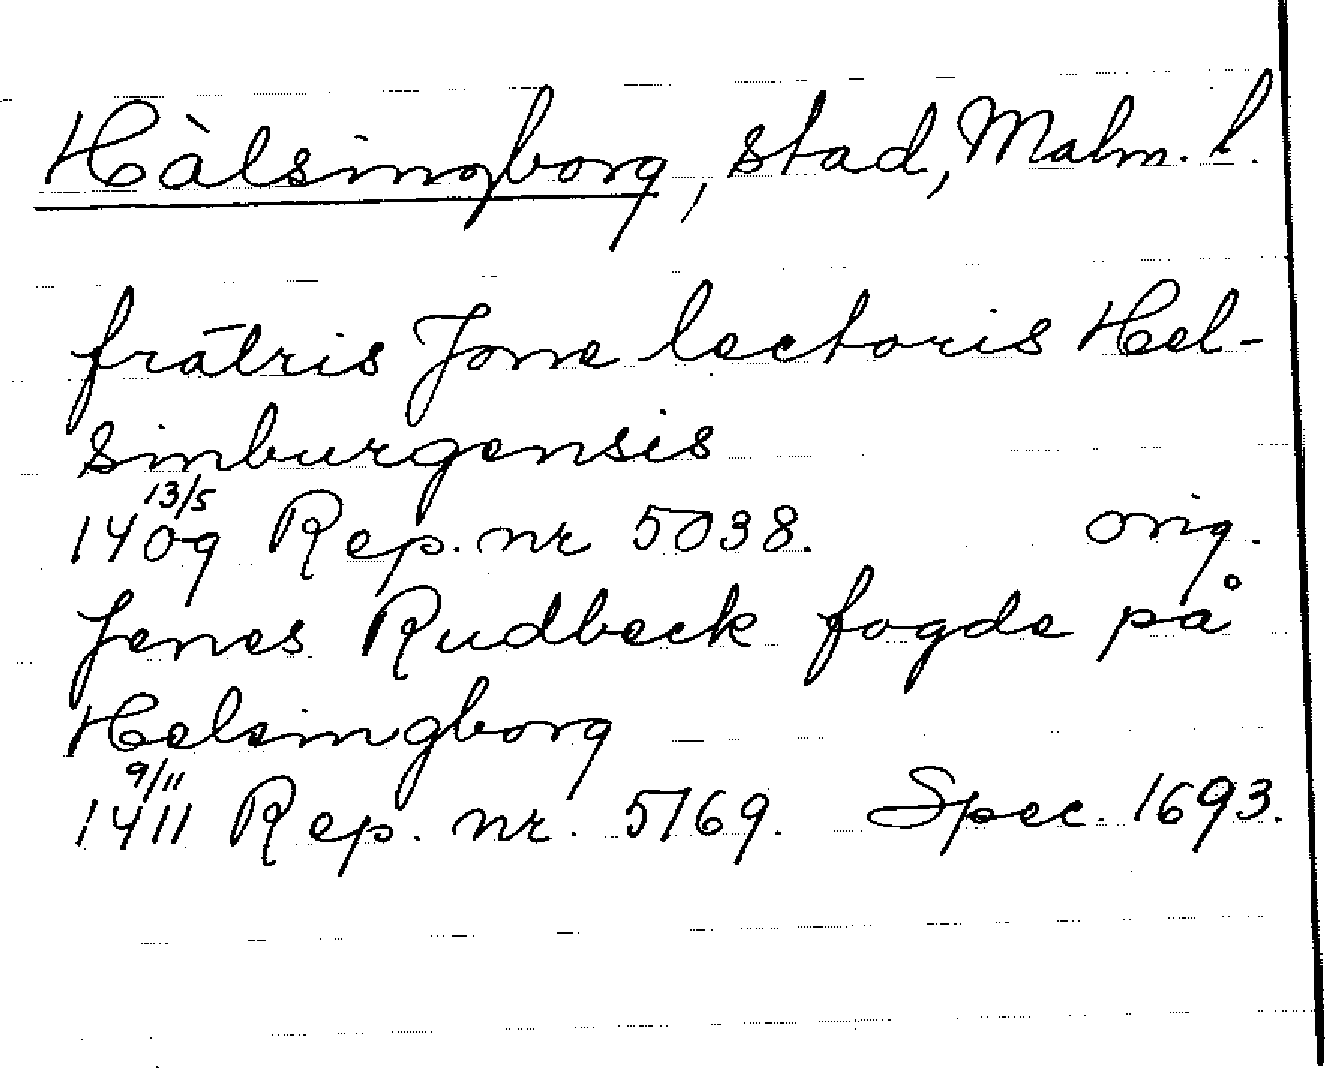 Hälsingborg, stad, Malm. l.
fratris Jone lectoris Hel-
sinburgensis
13/5
1409 Rep. nr 5038. orig.
Jenes Rudbeck fogde på
Helsingborg
9/11
1411 Rep. nr. 5169. Spec. 1693.